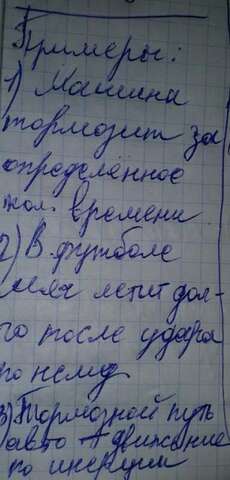 Примеры:
1) Машина
тормозит за
определённое
кол. времени
2) В футболе
мяч летит дол-
го после удара
по нему
3) Тормозной путь
авто → движение
по инерции